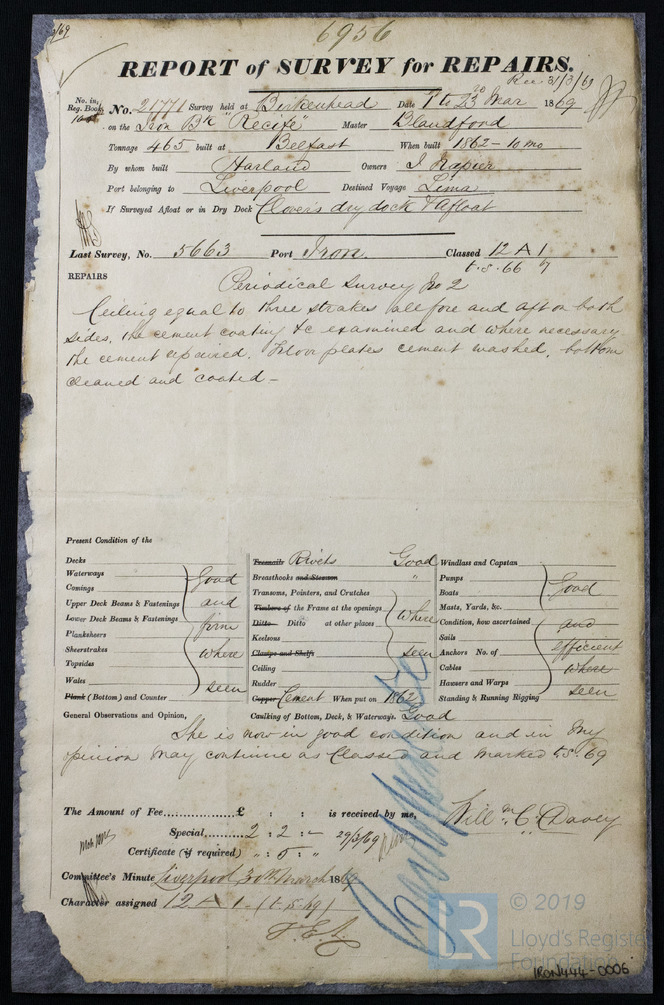 6956
/69
REPORT of SURVEY for REPAIRS.
Rec. 31/3/69
No. in Reg. Book
No. 21771 Survey held at Birkenhead Date 1 to 23 Mar 1869
20
on the Iron Bk "Recife" Master Blandford
Tonnage 465 built at Belfast When built 1862 - 10 mo
By whom built Harland Owners J. Napier
Port belonging to Liverpool Destined Voyage Lima
If Surveyed Afloat or in Dry Dock Clover's dry dock & Afloat
Last Survey, No. 5663 Port Iron. Classed 12 A 1
t.s. 66
REPAIRS
Periodical Survey No 2
Ceiling equal to three strakes all fore and aft on both
sides, the cement coating &c examined and where necessary
the cement repaired. Floor plates cement washed, bottom
cleaned and coated -
Present Condition of the
Decks
Waterways
Comings
Upper Deck Beams & Fastenings
Lower Deck Beams & Fastenings
Planksheers
Sheerstrakes
Topsides
Wales
Plank (Bottom) and Counter
Good
and
firm
where
seen
Treenails Rivets Good
Breasthooks and Stemson "
Transoms, Pointers, and Crutches
Timbers of the Frame at the openings
Ditto Ditto at other places
Keelsons
Clamps and Shelfs
Ceiling
Rudder
Copper Cement When put on 1862
where
seen
Windlass and Capstan
Pumps
Boats
Masts, Yards, &c.
Condition, how ascertained
Sails
Anchors No. of
Cables
Hawsers and Warps
Standing & Running Rigging
Good
and
efficient
where
seen
General Observations and Opinion, Caulking of Bottom, Deck, & Waterways. Good
She is now in good condition and in my
opinion may continue as Classed and marked t.s. 69
The Amount of Fee £ : : is received by me,
Special 2 : 2 : - 29/3/69
Certificate (if required) " : 5 : "
Will m. C. Davey
Committee's Minute Liverpool 30th March 1869
Character assigned 12 A 1. (t.s. 69)
LR
© 2019
Lloyd's Register
Foundation
IRON444-0006